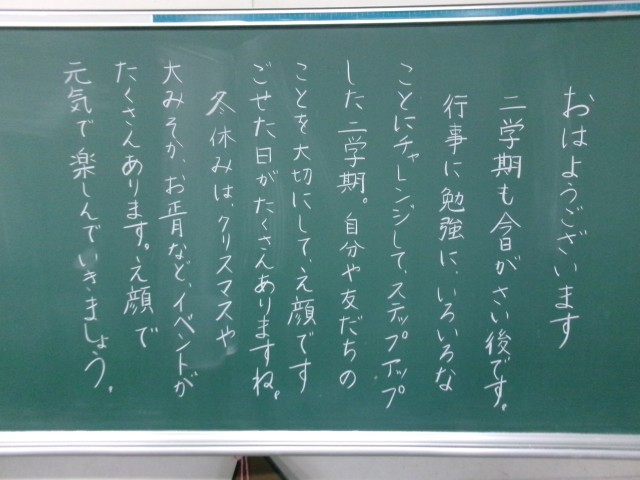 おはようございます
二学期も今日がさい後です。
行事に勉強に、いろいろな
ことにチャレンジして、ステップアップ
した二学期。自分や友だちの
ことを大切にして、え顔です
ごせた日がたくさんありますね。
冬休みは、クリスマスや
大みそか、お正月など、イベントが
たくさんあります。え顔で
元気で楽しんでいきましょう。